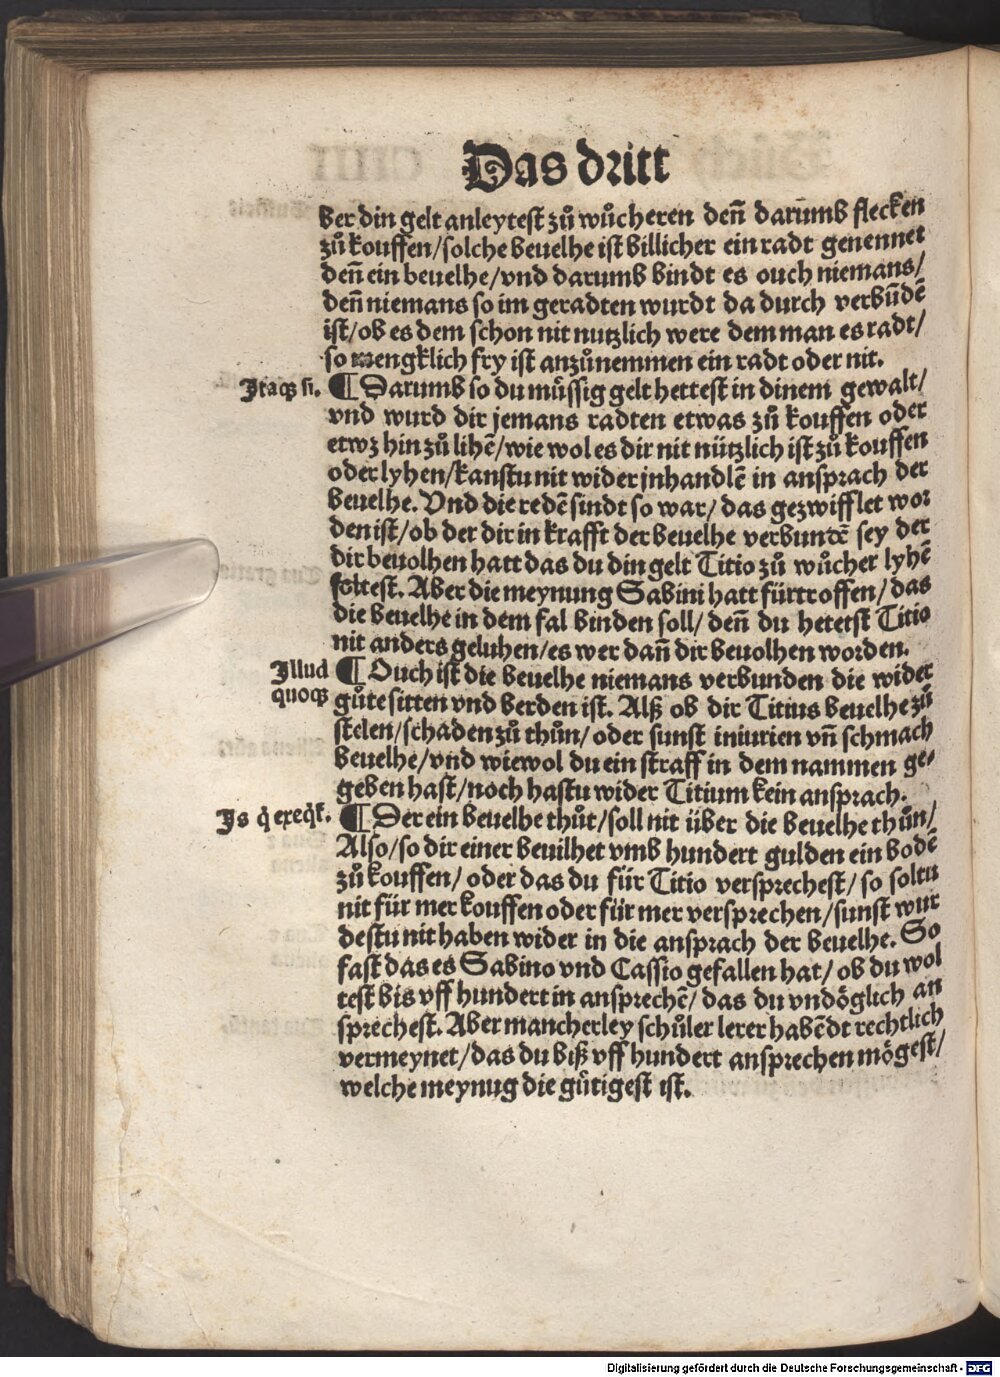 Das dritt
ber din gelt anleytest zů wůcheren deñ darũmb flecken
zů kouffen/solche beuelhe ist billicher ein radt genennet
deñ ein beuelhe/vnd darumb bindt es ouch niemans/
deñ niemans so im geradten wurdt da durch verbũdẽ
ist/ob es dem schon nit nutzlich were dem man es radt/
so mengklich fry ist anzůnemmen ein radt oder nit.
Itaqꝫ si. ¶ Darumb so du můssig gelt hettest in dinem gewalt/
vnd wurd dir jemans radten etwas zů kouffen oder
etwz hin zů lihẽ/wie wol es dir nit nützlich ist zů kouffen
oder lyhen/kanstu nit wider jnhandlẽ in ansprach der
beuelhe. Vnd die redẽ sindt so war/das gezwifflet wor
den ist/ob der dir in krafft der beuelhe verbundẽ sey der
dir beuolhen hatt das du din gelt Titio zů wůcher lyhẽ
soltest. Aber die meynung Sabini hatt fürtroffen/das
die beuelhe in dem fal binden soll/deñ du hetetst Titio
nit anders geluhen/es wer dañ dir beuolhen worden.
Illud ¶ Ouch ist die beuelhe niemans verbunden die wider
quoqꝫ gůte sitten vnd berden ist. Alß ob dir Titius beuelhe zů
stelen/schaden zů thůn/oder sunst iniurien vñ schmach
beuelhe/vnd wiewol du ein straff in dem nammen ge⸗
geben hast/noch hastu wider Titium kein ansprach.
Is q̇ exeq̇t. ¶ Der ein beuelhe thůt/soll nit über die beuelhe thůn/
Also/so dir einer beuilhet vmb hundert gulden ein bodẽ
zů kouffen/oder das du für Titio versprechest/so soltu
nit für mer kouffen oder für mer versprechen/sunst wur
destu nit haben wider in die ansprach der beuelhe. So
fast das es Sabino vnd Cassio gefallen hat/ob du wol
test bis vff hundert in ansprechẽ/das du vndöglich an
sprechest. Aber mancherley schůler lerer habẽdt rechtlich
vermeynet/das du biß vff hundert ansprechen mögest/
welche meynug die gůtigest ist.
Digitalisierung gefördert durch die Deutsche Forschungsgemeinschaft - DFG